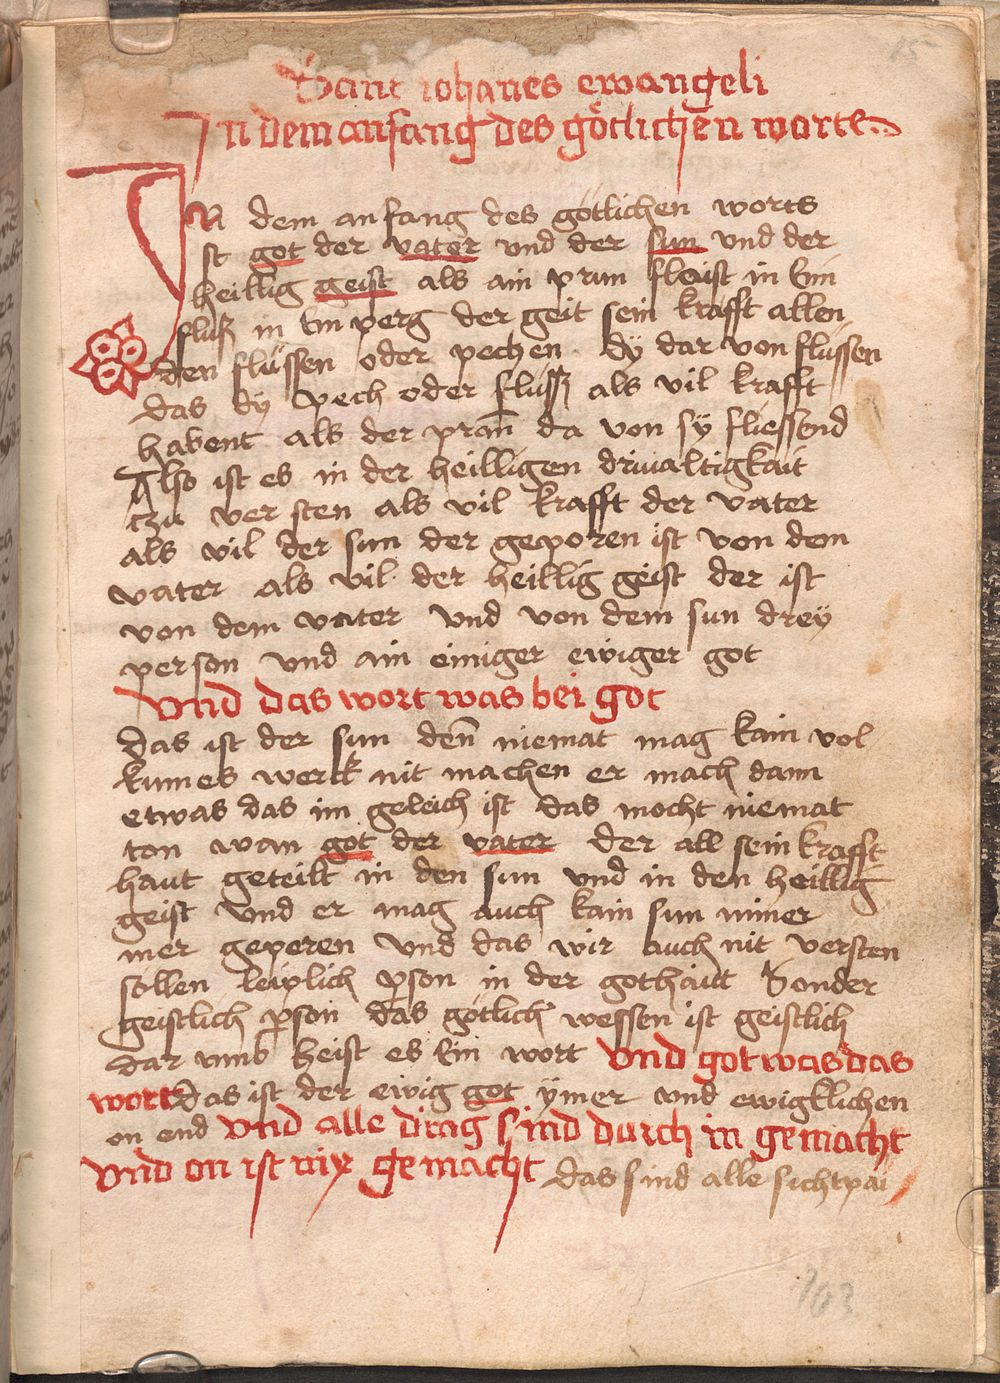 Sant iohanes ewangeli
In dem anfang des götlichen worte
IN dem anfang des götlichen worts
ist got der vater vnd der sun vnd der
heillig geist als ain prun fleist in ein
fluß in ein perg der geit sein krafft allen
den flüssen oder pechen dÿ dar von flüssen
das dÿ pech oder fluss als vil krafft
habent als der pran̄ da von sÿ fliessend
Also ist es in der heilligen driualtigkait
tzu versten als vil krafft der vater
als vil der sun der geporen ist von dem
vater als vil der heillig geist der ist
von dem vater vnd von dem sun dreÿ
person vnd ain einiger ewiger got
Vnd das wort was bei got
das ist der sun den̄ niemat mag kain vol
kumes werck nit machen er mach dann
etwas das im geleich ist das mocht niemat
ton wan got der vater der all sein krafft
haut geteilt in den sun vnd in den heillig
geist vnd er mag auch kain sun nimer
mer geperen vnd das wir auch nit versten
söllen leiplich pson in der gothait Sonder
geistlich pson das götlich wessen ist geistlich
dar vmb heist es ein wort Vnd got was das
wort das ist der ewig got ÿmer vnd ewigklichen
on end Vnd alle ding sind durch in gemacht
Vnd on ist nix gemacht das sind alle sichtpai
103
15